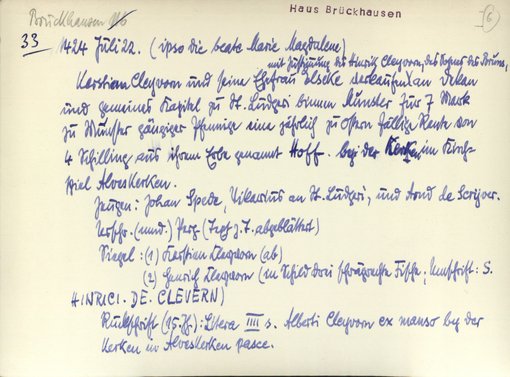 Bruckhausen
Haus Brückhausen
(6)
33 1424 Juli 22. (ipso die beate Marie Magdalene)
mit Zustimmung des Hinrik Cleyvorn, des Sohnes des Bruns,
Kerstian Cleyvorn und seine Ehefrau Elseke verkaufen an Dekan
und gemeines Kapitel zu St. Ludgeri binnen Munster für 7 Mark
zu Munster gängiger Pfennige eine jährlich zu Ostern fällige Rente von
4 Schilling aus ihrem Erbe genannt Hoff. bey der Kerken im Kirch-
spiel Alveskerken.
Zeugen: Johan Spede, Vikarius an St. Ludgeri, und Arnd de Scrijver.
Urschr. (mnd.) Perg. (Text z. T. abgeblättert)
Siegel: (1) Kerstian Clegvorn (ab)
(2) Henrich Clegvorn (im Schild drei schrägrechte Fische, Umschrift: S.
HINRICI. DE. CLEVERN)
Rückschrift (15. Jh.): Litera IIII s. Alberti Cleyvorn ex manso by der
Kerken in Alveskerken pasce.